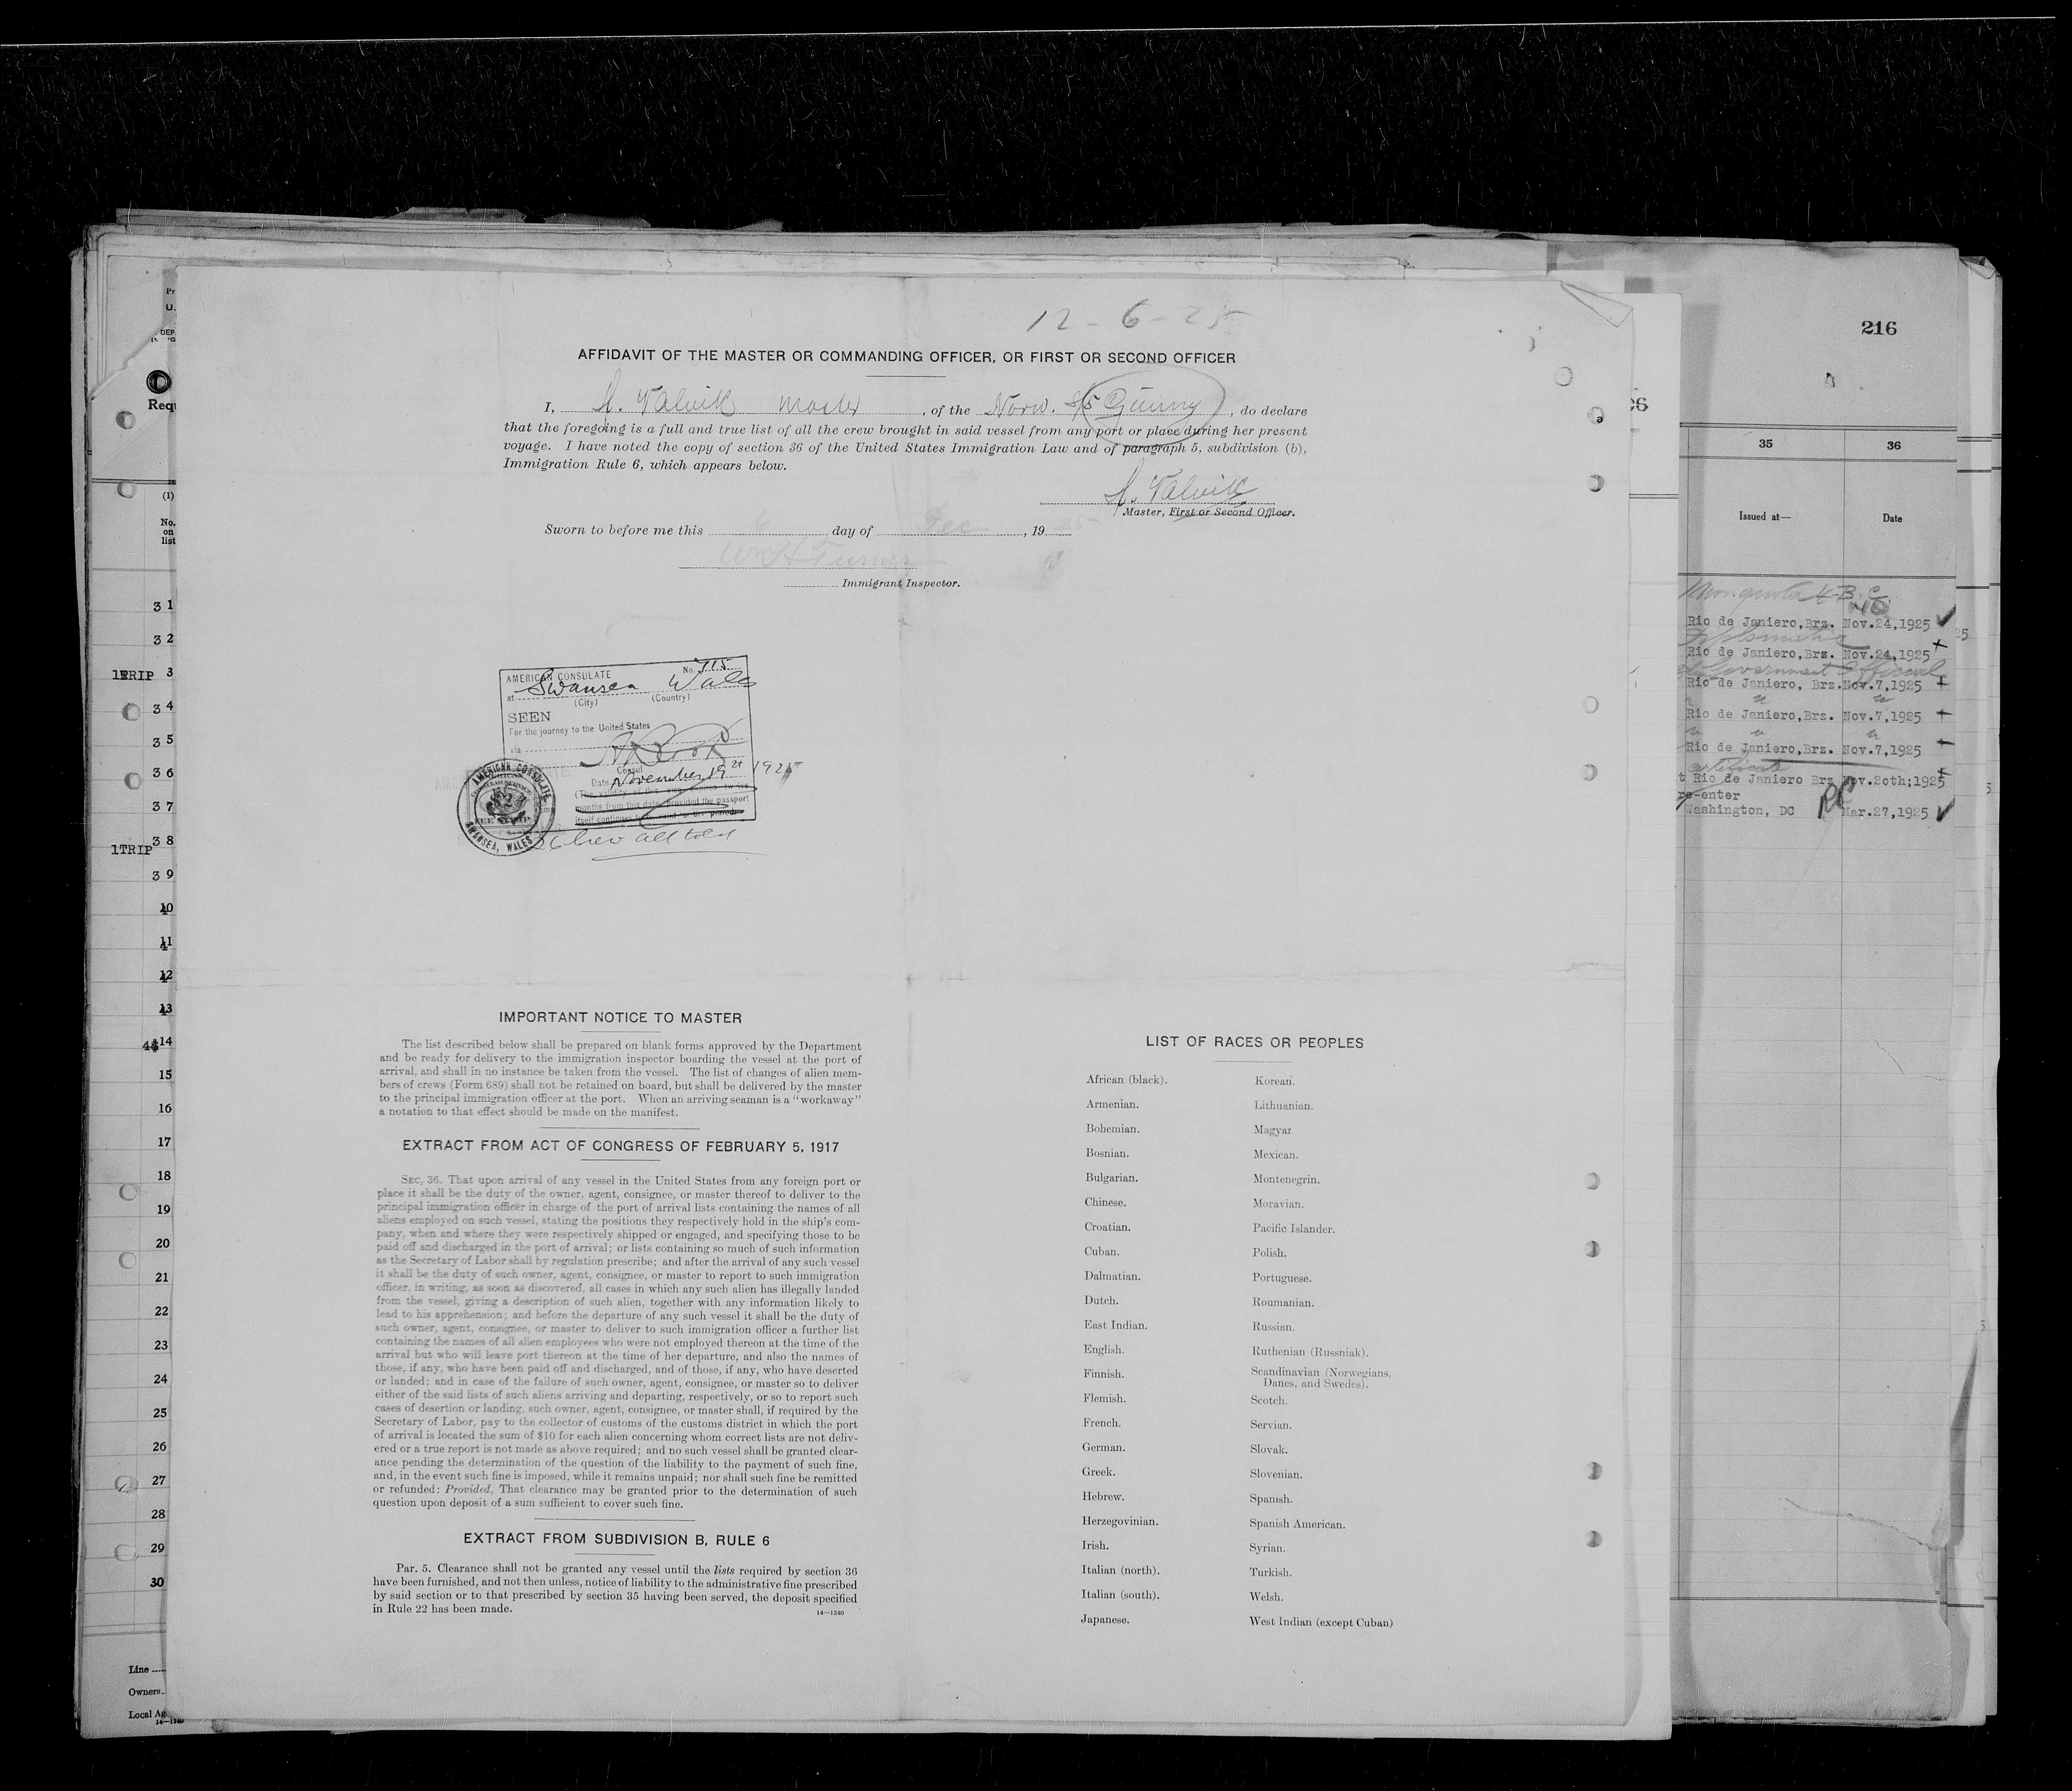 12-6-25
AFFIDAVIT OF THE MASTER OR COMMANDING OFFICER, OR FIRST OR SECOND OFFICER
I, Master, of the Norw. S/S Gunny, do declare
that the foregoing is a full and true list of all the crew brought in said vessel from any port or place during her present
voyage. I have noted the copy of section 36 of the United States Immigration Law and of paragraph 5, subdivision (b),
Immigration Rule 6, which appears below.
Master, First or Second Officer.
Sworn to before me this 6 day of Dec, 1925
Wm H Turner
Immigrant Inspector.
AMERICAN CONSULATE No. 715
at Swansea Wales
(City) (Country)
SEEN
For the journey to the United States
via
Consul
Date November 19th 1925
(The validity of this visa expires twelve
months from this date, provided the passport
itself continues to be valid for that period.)
AMERICAN CONSULATE
SWANSEA, WALES
Crew all told
IMPORTANT NOTICE TO MASTER
The list described below shall be prepared on blank forms approved by the Department
and be ready for delivery to the immigration inspector boarding the vessel at the port of
arrival, and shall in no instance be taken from the vessel. The list of changes of alien mem-
bers of crews (Form 689) shall not be retained on board, but shall be delivered by the master
to the principal immigration officer at the port. When an arriving seaman is a "workaway"
a notation to that effect should be made on the manifest.
EXTRACT FROM ACT OF CONGRESS OF FEBRUARY 5, 1917
SEC. 36. That upon arrival of any vessel in the United States from any foreign port or
place it shall be the duty of the owner, agent, consignee, or master thereof to deliver to the
principal immigration officer in charge of the port of arrival lists containing the names of all
aliens employed on such vessel, stating the positions they respectively hold in the ship's com-
pany, when and where they were respectively shipped or engaged, and specifying those to be
paid off and discharged in the port of arrival; or lists containing so much of such information
as the Secretary of Labor shall by regulation prescribe; and after the arrival of any such vessel
it shall be the duty of such owner, agent, consignee, or master to report to such immigration
officer, in writing, as soon as discovered, all cases in which any such alien has illegally landed
from the vessel, giving a description of such alien, together with any information likely to
lead to his apprehension; and before the departure of any such vessel it shall be the duty of
such owner, agent, consignee, or master to deliver to such immigration officer a further list
containing the names of all alien employees who were not employed thereon at the time of the
arrival but who will leave port thereon at the time of her departure, and also the names of
those, if any, who have been paid off and discharged, and of those, if any, who have deserted
or landed; and in case of the failure of such owner, agent, consignee, or master so to deliver
either of the said lists of such aliens arriving and departing, respectively, or so to report such
cases of desertion or landing, such owner, agent, consignee, or master shall, if required by the
Secretary of Labor, pay to the collector of customs of the customs district in which the port
of arrival is located the sum of $10 for each alien concerning whom correct lists are not deliv-
ered or a true report is not made as above required; and no such vessel shall be granted clear-
ance pending the determination of the question of the liability to the payment of such fine,
and, in the event such fine is imposed, while it remains unpaid; nor shall such fine be remitted
or refunded: Provided, That clearance may be granted prior to the determination of such
question upon deposit of a sum sufficient to cover such fine.
EXTRACT FROM SUBDIVISION B, RULE 6
Par. 5. Clearance shall not be granted any vessel until the lists required by section 36
have been furnished, and not then unless, notice of liability to the administrative fine prescribed
by said section or to that prescribed by section 35 having been served, the deposit specified
in Rule 22 has been made.
14-1240
LIST OF RACES OR PEOPLES
African (black).
Armenian.
Bohemian.
Bosnian.
Bulgarian.
Chinese.
Croatian.
Cuban.
Dalmatian.
Dutch.
East Indian.
English.
Finnish.
Flemish.
French.
German.
Greek.
Hebrew.
Herzegovinian.
Irish.
Italian (north).
Italian (south).
Japanese.
Korean.
Lithuanian.
Magyar.
Mexican.
Montenegrin.
Moravian.
Pacific Islander.
Polish.
Portuguese.
Roumanian.
Russian.
Ruthenian (Russniak).
Scandinavian (Norwegians,
Danes, and Swedes).
Scotch.
Servian.
Slovak.
Slovenian.
Spanish.
Spanish American.
Syrian.
Turkish.
Welsh.
West Indian (except Cuban)
(1)
No.
on
list
1TRIP
15
16
17
18
19
20
21
22
23
24
25
26
27
28
29
30
Line
Owners
Local Ag
216
35 36
Issued at— Date
Rio de Janiero,Brz. Nov.24,1925
Rio de Janiero,Brz. Nov.24,1925
Government Official
Rio de Janiero, Brz. Nov.7,1925
Rio de Janiero,Brz. Nov.7,1925
Rio de Janiero,Brz. Nov.7,1925
Rio de Janiero Brz Nov.20th;1925
re-enter
Washington, DC Mar.27,1925